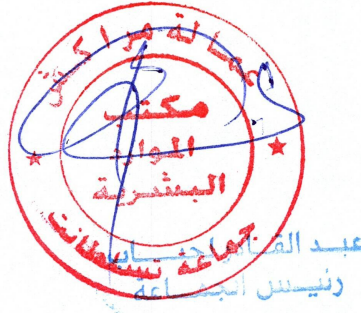 عمالة مراكش
مكتب
الموارد
البشرية
جماعة تسلطانت
عبد القادر
رئيس الجماعة